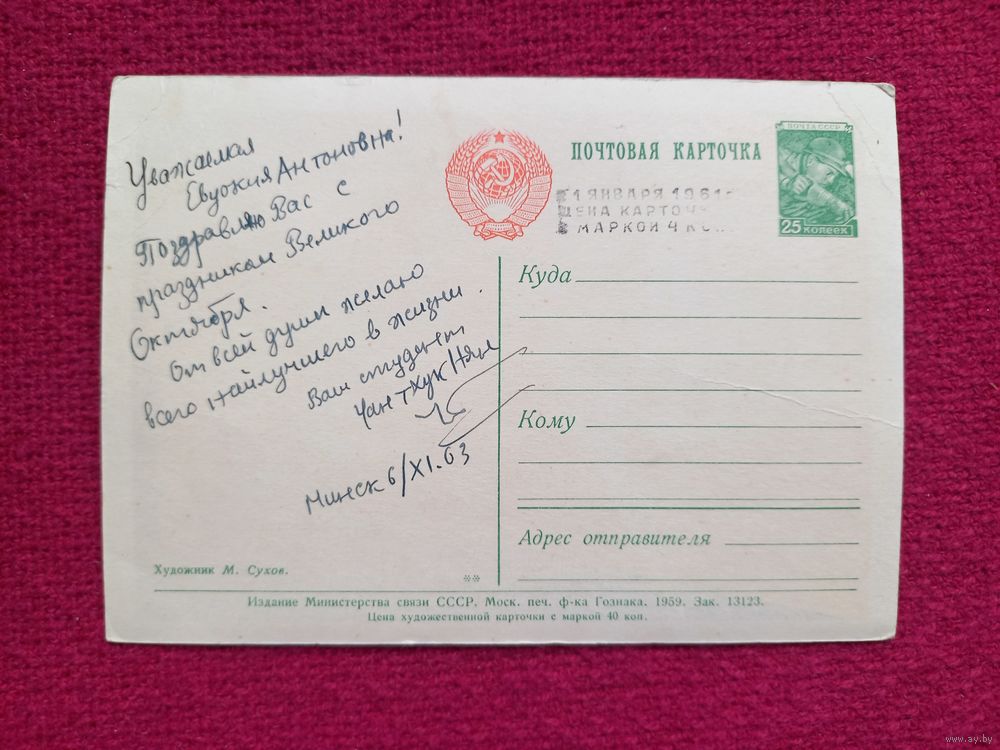 Уважаемая
Евдокия Антоновна!
Поздравляю Вас с
праздником Великого
Октября.
От всей души желаю
всего наилучшего в жизни.
Ваш студент
Чан тхук Нян
Минск 6/XI.63
ПОЧТОВАЯ КАРТОЧКА
ПОЧТА СССР
25 КОПЕЕК
1 ЯНВАРЯ 1961
ЦЕНА КАРТОЧ
МАРКОЙ 4 К
Куда
Кому
Адрес отправителя
Художник М. Сухов.
**
Издание Министерства связи СССР. Моск. печ. ф-ка Гознака. 1959. Зак. 13123.
Цена художественной карточки с маркой 40 коп.
www.ay.by